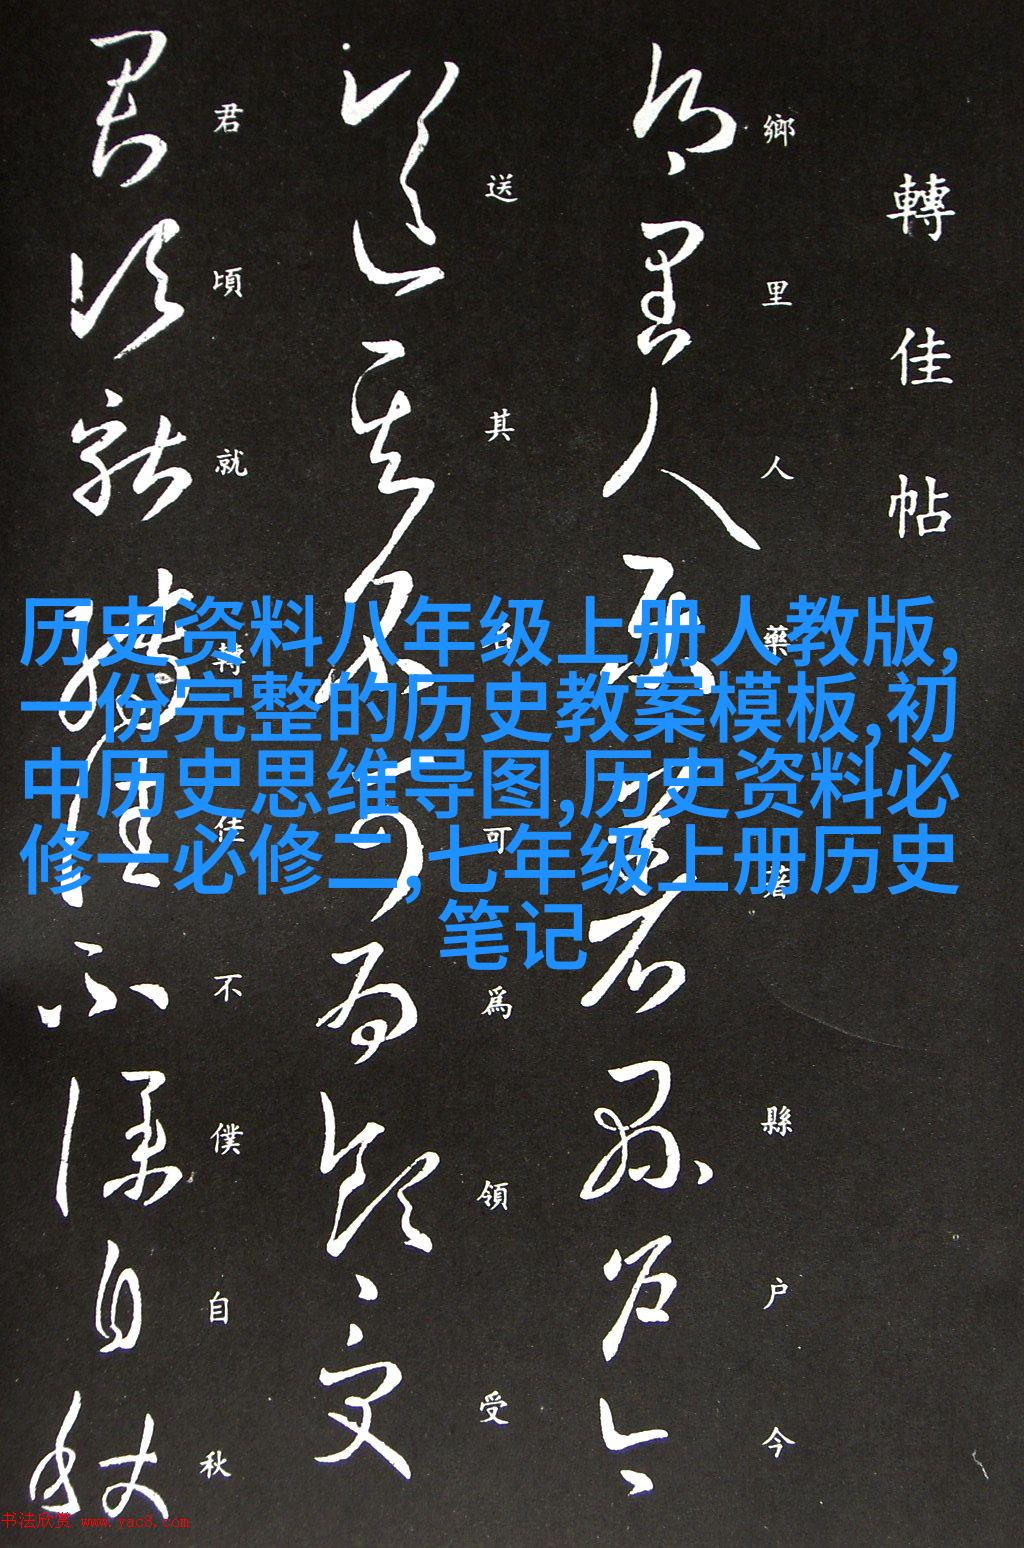 轉佳帖
鄉里人藥著縣户今
送其名可為領受
君頃就轉佳不僕自秋
历史资料八年级上册人教版,
一份完整的历史教案模板,初
中历史思维导图,历史资料必
修一必修二,七年级上册历史
笔记
书法欣赏 www.yac8.com